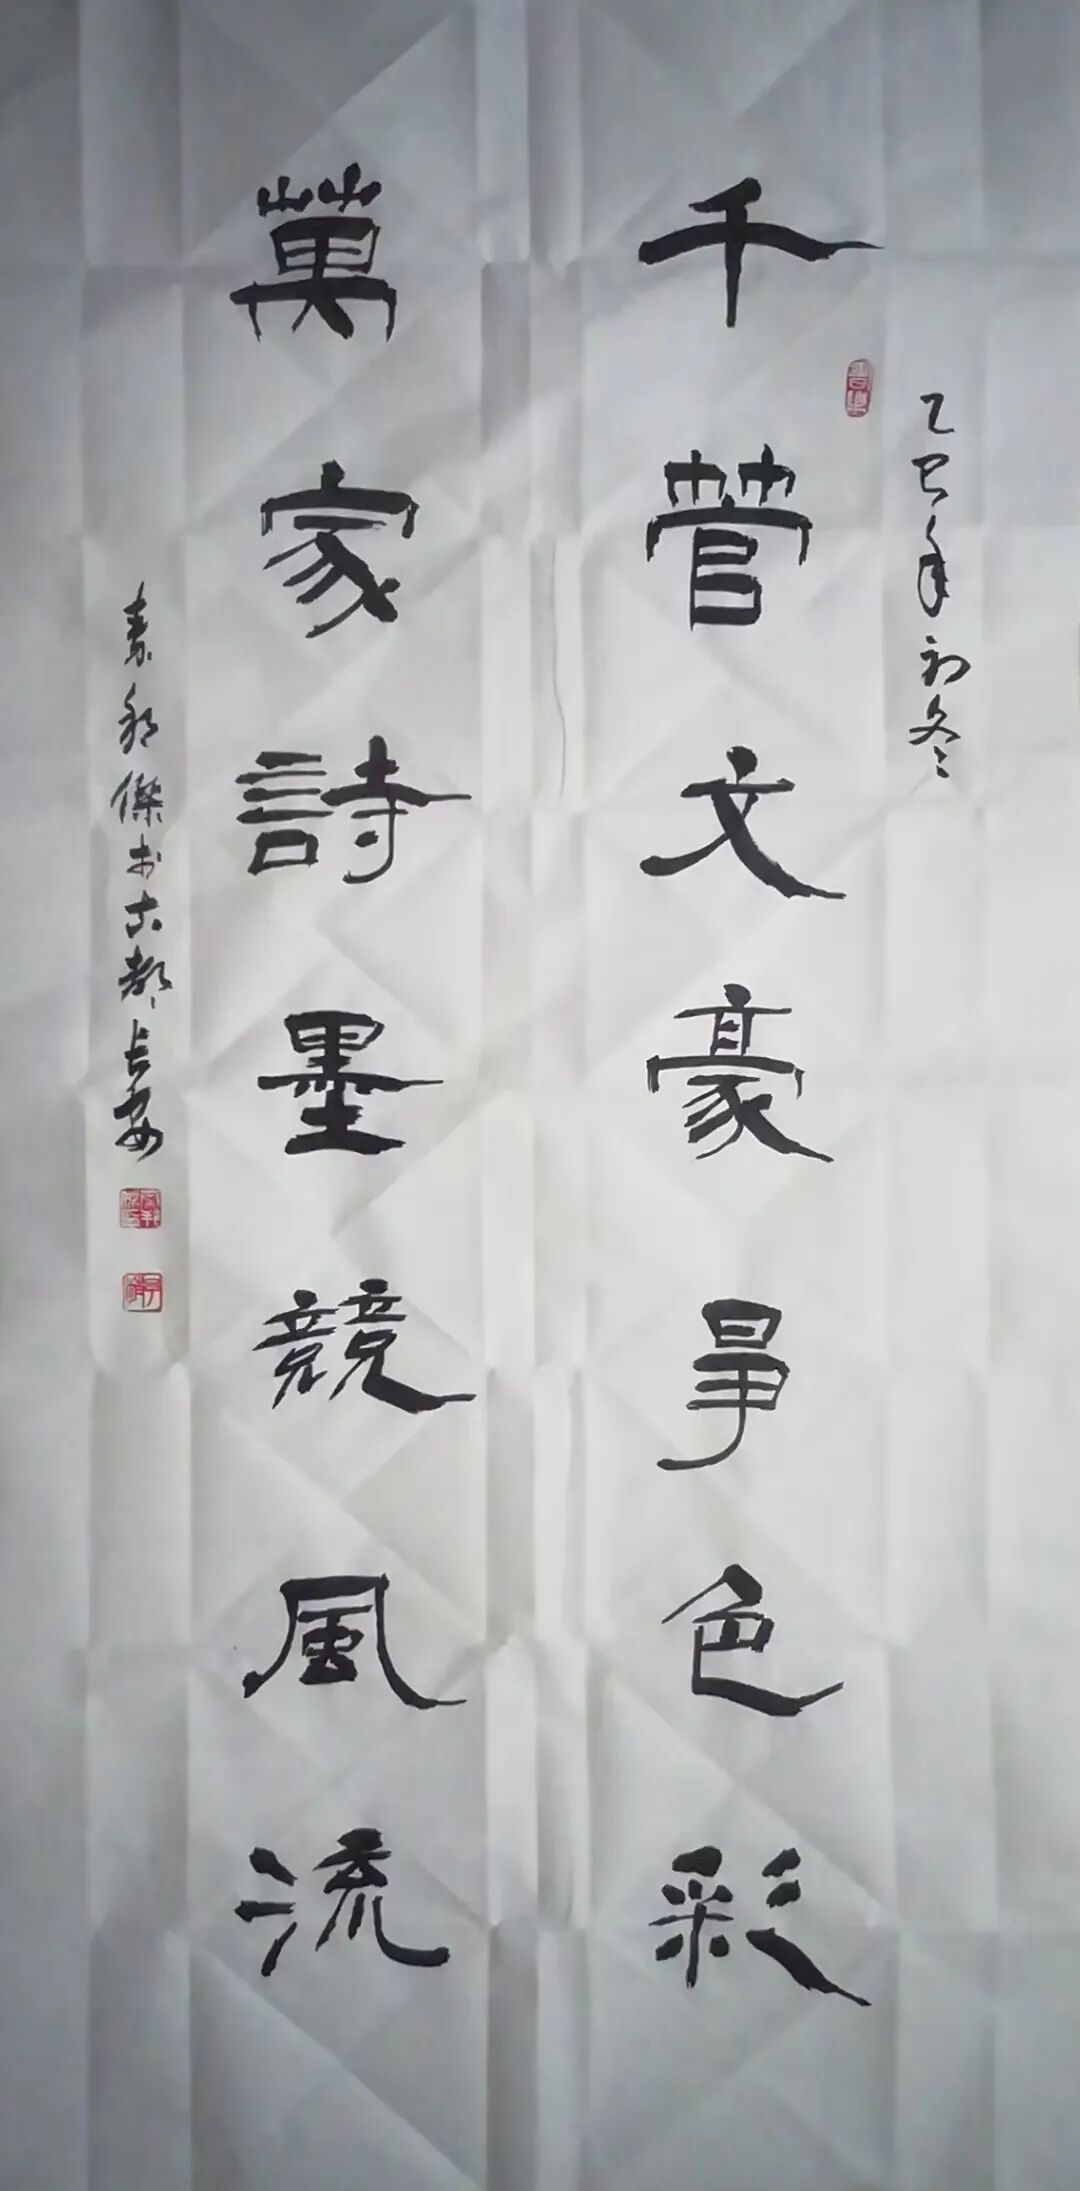 乙巳年初冬
千管文豪事色彩
萬家詩墨競風流
傑书古都長安